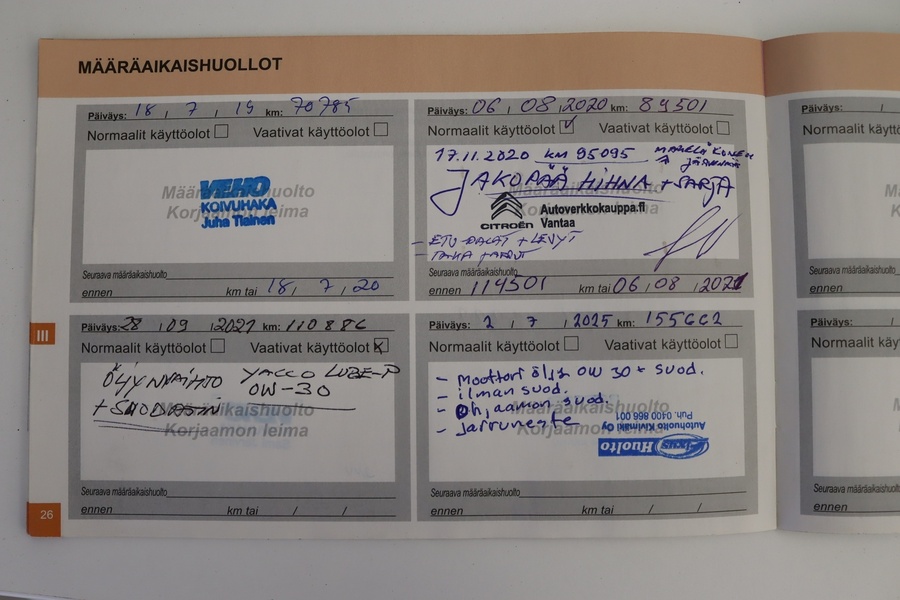 MÄÄRÄAIKAISHUOLLOT
Päiväys: 18 / 7 / 19 km: 70785
Normaalit käyttöolot Vaativat käyttöolot
Määräaikaishuolto
Korjaamon leima
VEHO
KOIVUHAKA
Juha Tiainen
Seuraava määräaikaishuolto
ennen km tai 18 / 7 / 20
Päiväys: 06 / 08 / 2020 km: 89501
Normaalit käyttöolot Vaativat käyttöolot
17.11.2020 km 95095
JAKOPÄÄ HIHNA + SARJA
Määräaikaishuolto
Korjaamon leima
CITROËN
Autoverkkokauppa.fi
Vantaa
- ETU PALAT + LEVYT
Seuraava määräaikaishuolto
ennen 114501 km tai 06 / 08 / 2021
III
Päiväys: 28 / 09 / 2021 km: 110886
Normaalit käyttöolot Vaativat käyttöolot
ÖLJYNVAIHTO YACCO LUBE-P
0W-30
+ SUODATIN
Määräaikaishuolto
Korjaamon leima
Seuraava määräaikaishuolto
ennen km tai / /
Päiväys: 2 / 7 / 2025 km: 155662
Normaalit käyttöolot Vaativat käyttöolot
- Moottori öljy 0W 30 + suod.
- ilman suod.
- ohjaamon suod.
- Jarruneste
Määräaikaishuolto
Korjaamon leima
Fixus Huolto
Autohuolto Kivimäki Oy
Puh. 0400 866 001
Seuraava määräaikaishuolto
ennen km tai / /
26
Päiväys: /
Normaalit käyttöo
Seuraava määräaikaishuolto
ennen
Päiväys: /
Normaalit käyttöo
Seuraava määräaikaishuolto
ennen